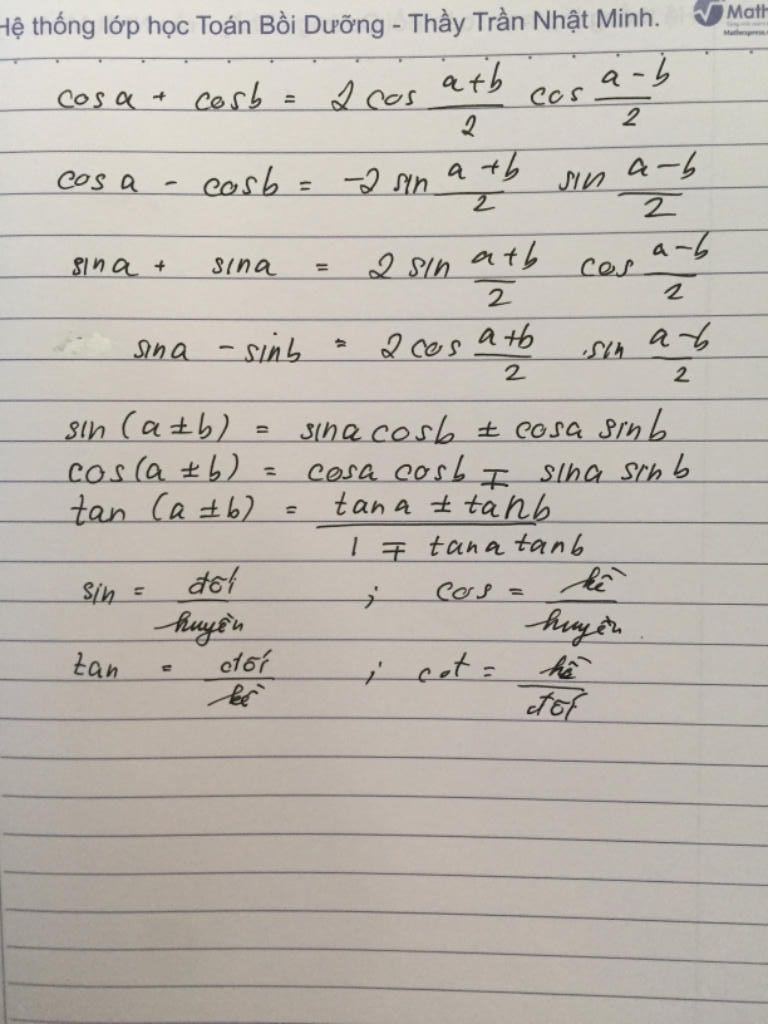 Hệ thống lớp học Toán Bồi Dưỡng - Thầy Trần Nhật Minh.
Math
Mathexpress.
cos a + cos b = 2 cos (a+b)/2 cos (a-b)/2
cos a - cos b = -2 sin (a+b)/2 sin (a-b)/2
sin a + sin a = 2 sin (a+b)/2 cos (a-b)/2
sin a - sin b = 2 cos (a+b)/2 . sin (a-b)/2
sin (a ± b) = sin a cos b ± cos a sin b
cos (a ± b) = cos a cos b ∓ sin a sin b
tan (a ± b) = (tan a ± tan b)/(1 ∓ tan a tan b)
sin = đối/huyền ; cos = kề/huyền
tan = đối/kề ; cot = kề/đối